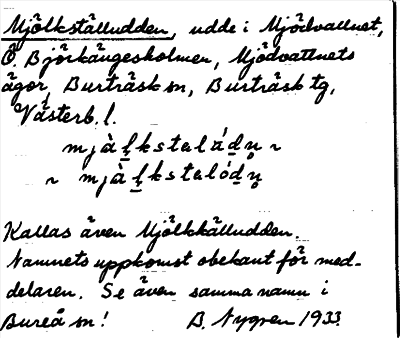 Mjölkställudden, udde i Mjödvattnet,
Ö. Björkängesholmen, Mjödvattnets
ägor, Burträsk sn, Burträsk tg,
Västerb. l.
mjȧl̥kstaláḍn̥ ~
~ mjȧl̥kstalóḍn̥
Kallas även Mjölkkälludden.
Namnets uppkomst obekant för med-
delaren. Se även samma namn i
Bureå sn! B. Nygren 1933.